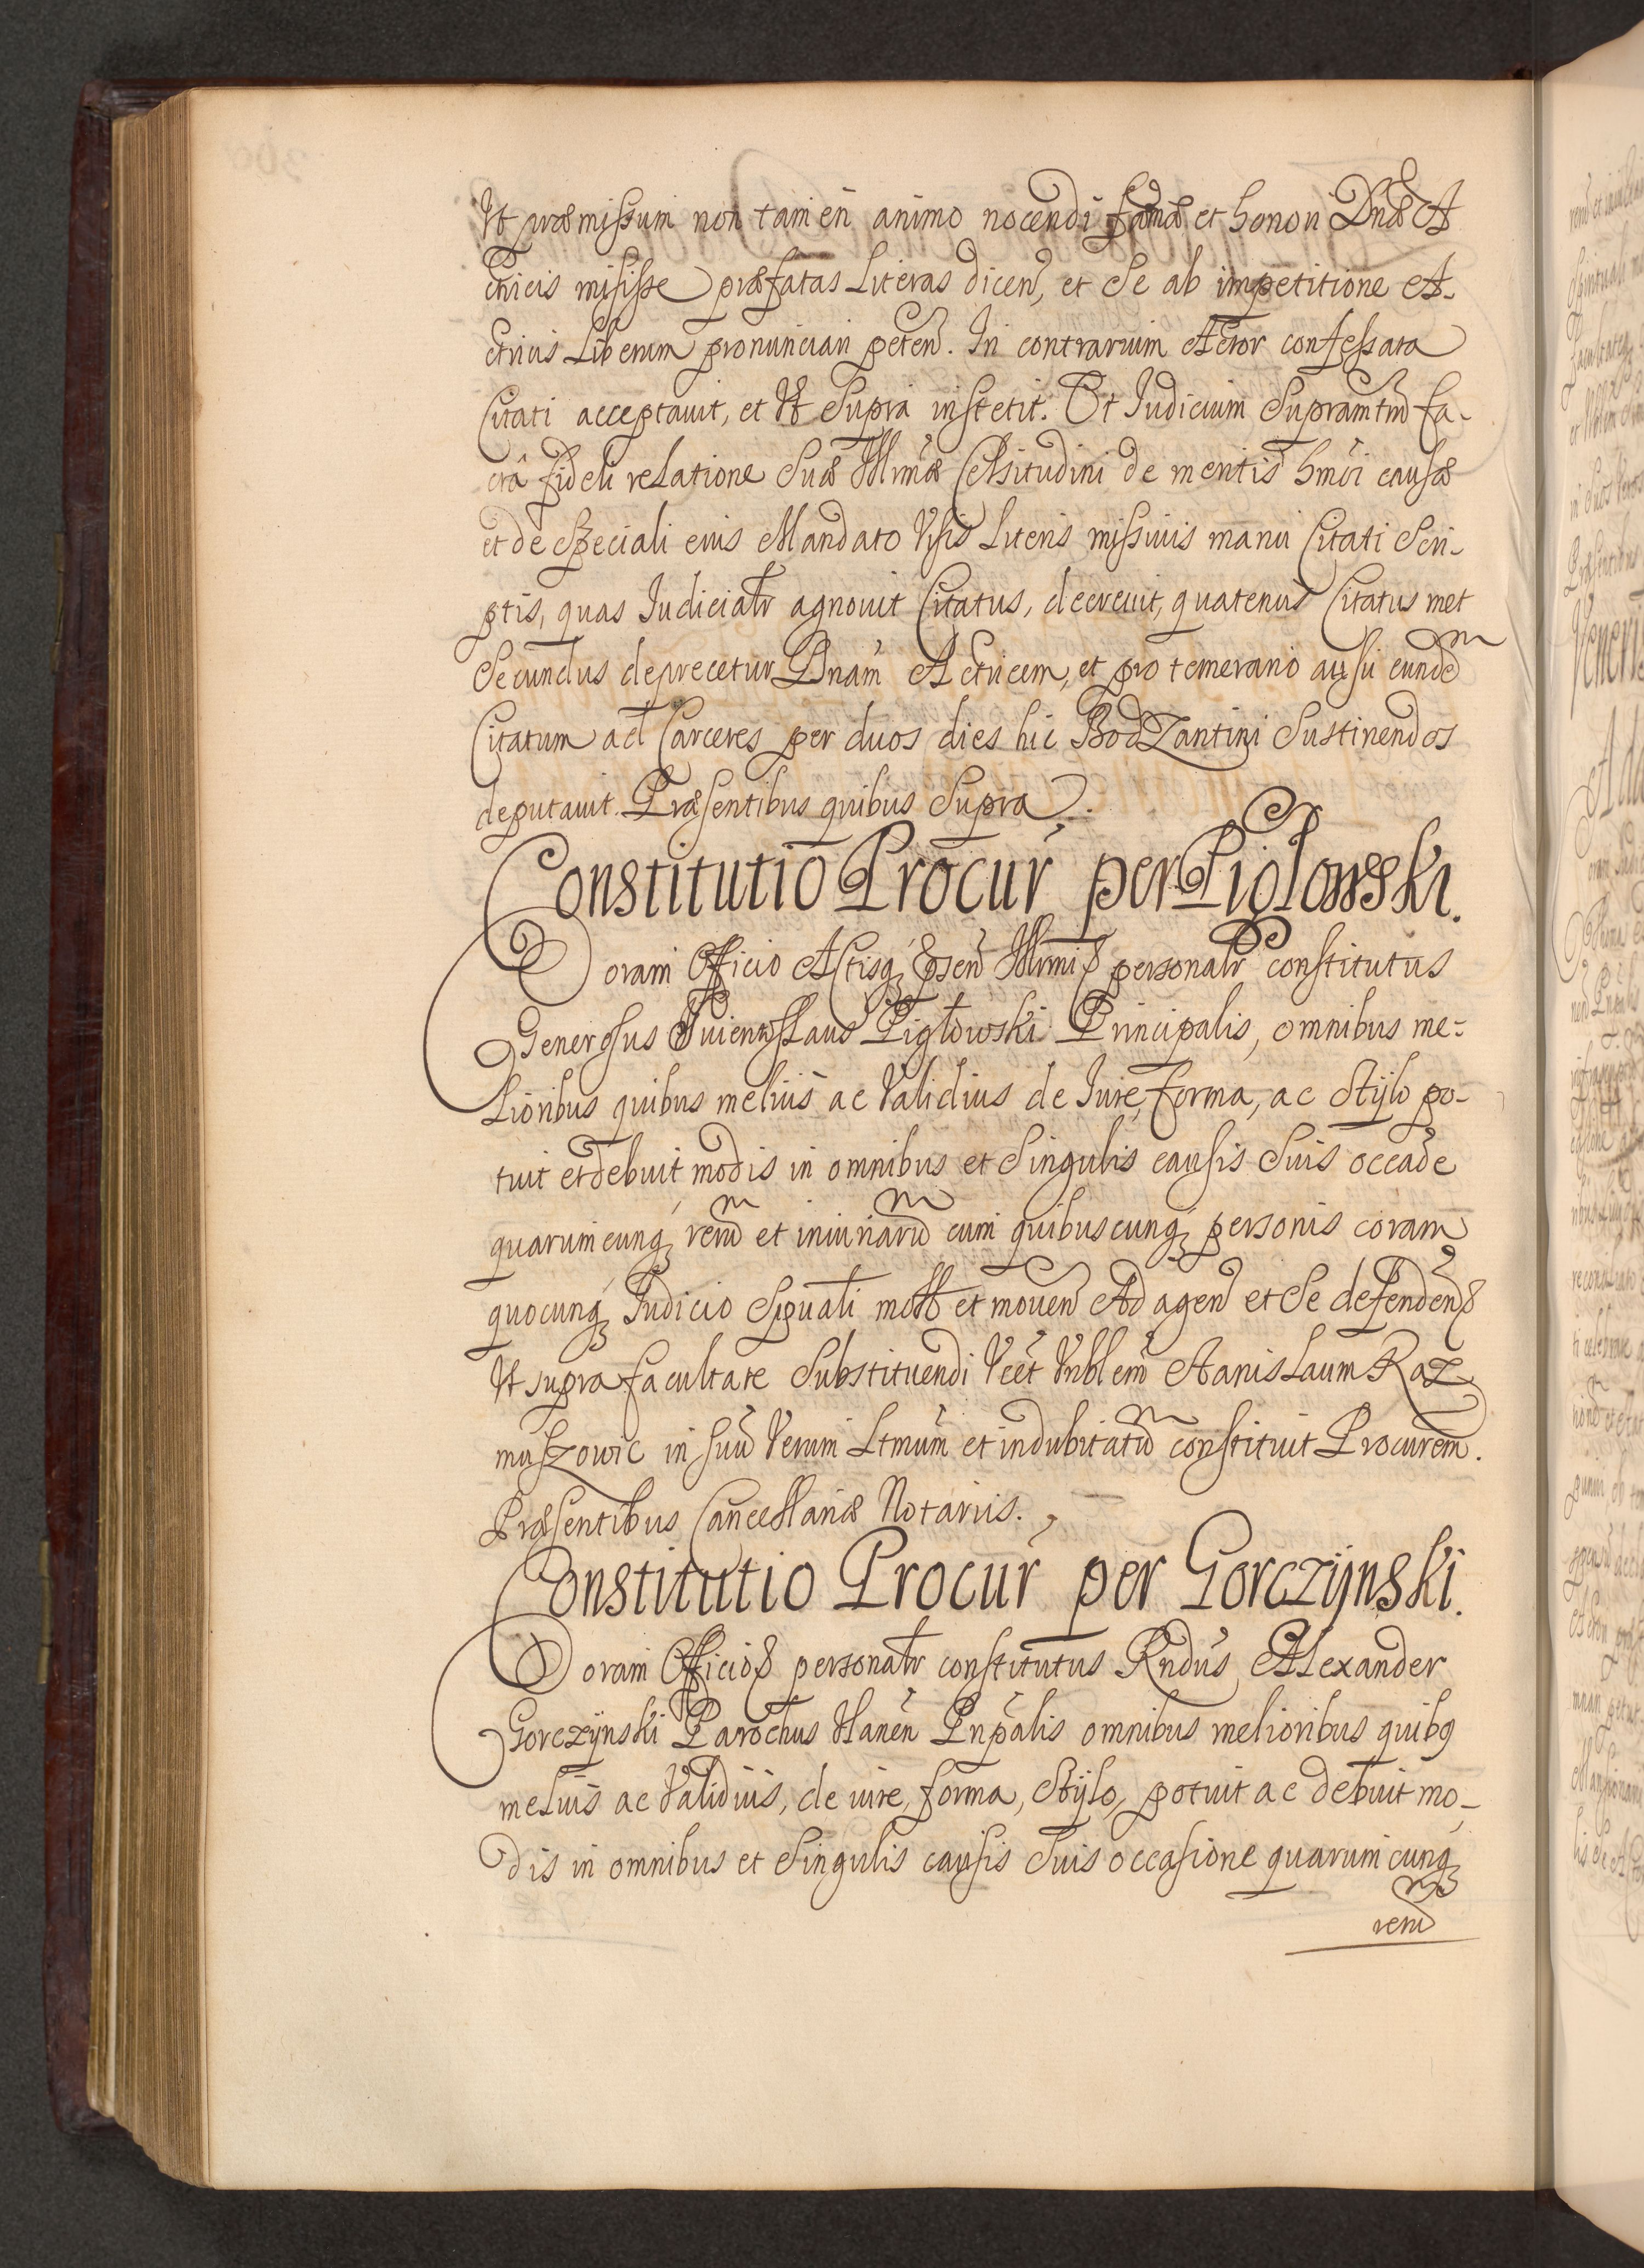 Ut præmissum non tamen animo nocendi famæ et honori Dnæ A
ctricis misisse præfatas Literas dicen, et Se ab impetitione A-
ctricis Liberum pronunciari peten. In contrarium Actor confessata
Citati acceptavit, et Ut Supra institit. Et Iudicium Supramtum fa-
cta fideli relatione Suæ Illmæ Celsitudini de meritis hmoi causæ
et de Speciali eius Mandato Visis Literis missivis manu Citati Scri-
ptis, quas Iudicialr agnovit Citatus, decrevit, quatenus Citatus met
Secundus deprecetur Dnam Actricem, et pro temerario ausu eundem
Citatum ad Carceres per duos dies hic BodZantini Sustinendos
deputavit. Præsentibus quibus Supra.
Constitutio Procur per Pigłowski.
Coram Officio Actisq; Psen Illmi & personalr constitutus
Generosus Pigłowski Principalis, omnibus me-
Lioribus quibus melius ac Validius de Iure, forma, ac Stijlo po-
tuit et debuit modis in omnibus et Singulis causis Suis occade
quarumcunq; rerum et iniuriarum cum quibuscunq; personis coram
quocunq; Iudicio Spuali mott et moven Ad agen et Se defenden &
Ut supra facultate Substituendi Vcet Nblem Stanislaum Raz
muszowic in suum Verum Ltmum et indubitatum constituit Procurem.
Præsentibus Cancellariæ Notariis.
Constitutio Procur per Gorczijnski.
Coram Officio & personalr constitutus Rndus Alexander
Gorczijnski Parochus Pnpalis omnibus melioribus quibg
melius ac Validius, de iure, forma, Stijlo, potuit ac debuit mo-
dis in omnibus et Singulis causis Suis occasione quarumcunq;
rerum